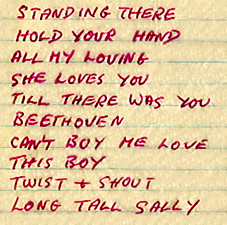 STANDING THERE
HOLD YOUR HAND
ALL MY LOVING
SHE LOVES YOU
TILL THERE WAS YOU
BEETHOVEN
CAN'T BOY ME LOVE
THIS BOY
TWIST + SHOUT
LONG TALL SALLY